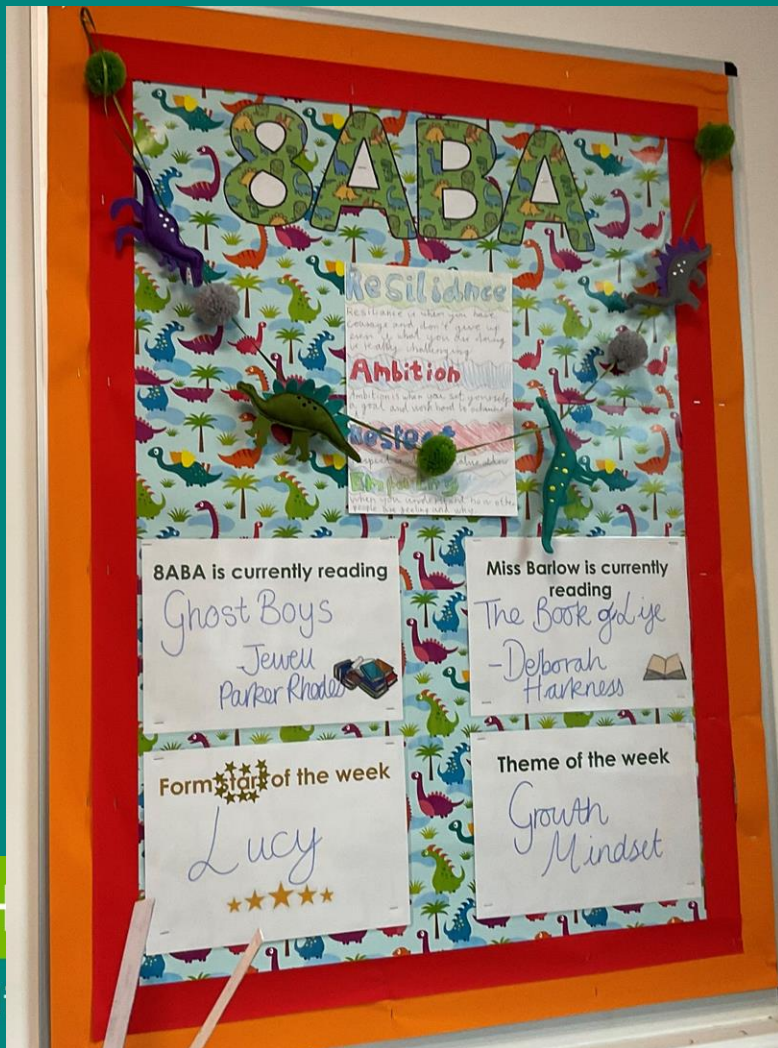 8ABA
Resiliance
Resiliance is when you have
courage and don't give up
even is what you are doing
is really challenging
Ambition
Ambition is when you set yourself
a goal and work hard to
Respect
Empathy
when you understand how other
people are feeling and why
8ABA is currently reading
Ghost Boys
-Jewell
Parker Rhodes
Miss Barlow is currently
reading
The Book of Life
-Deborah
Harkness
Form star of the week
Lucy
Theme of the week
Growth
Mindset